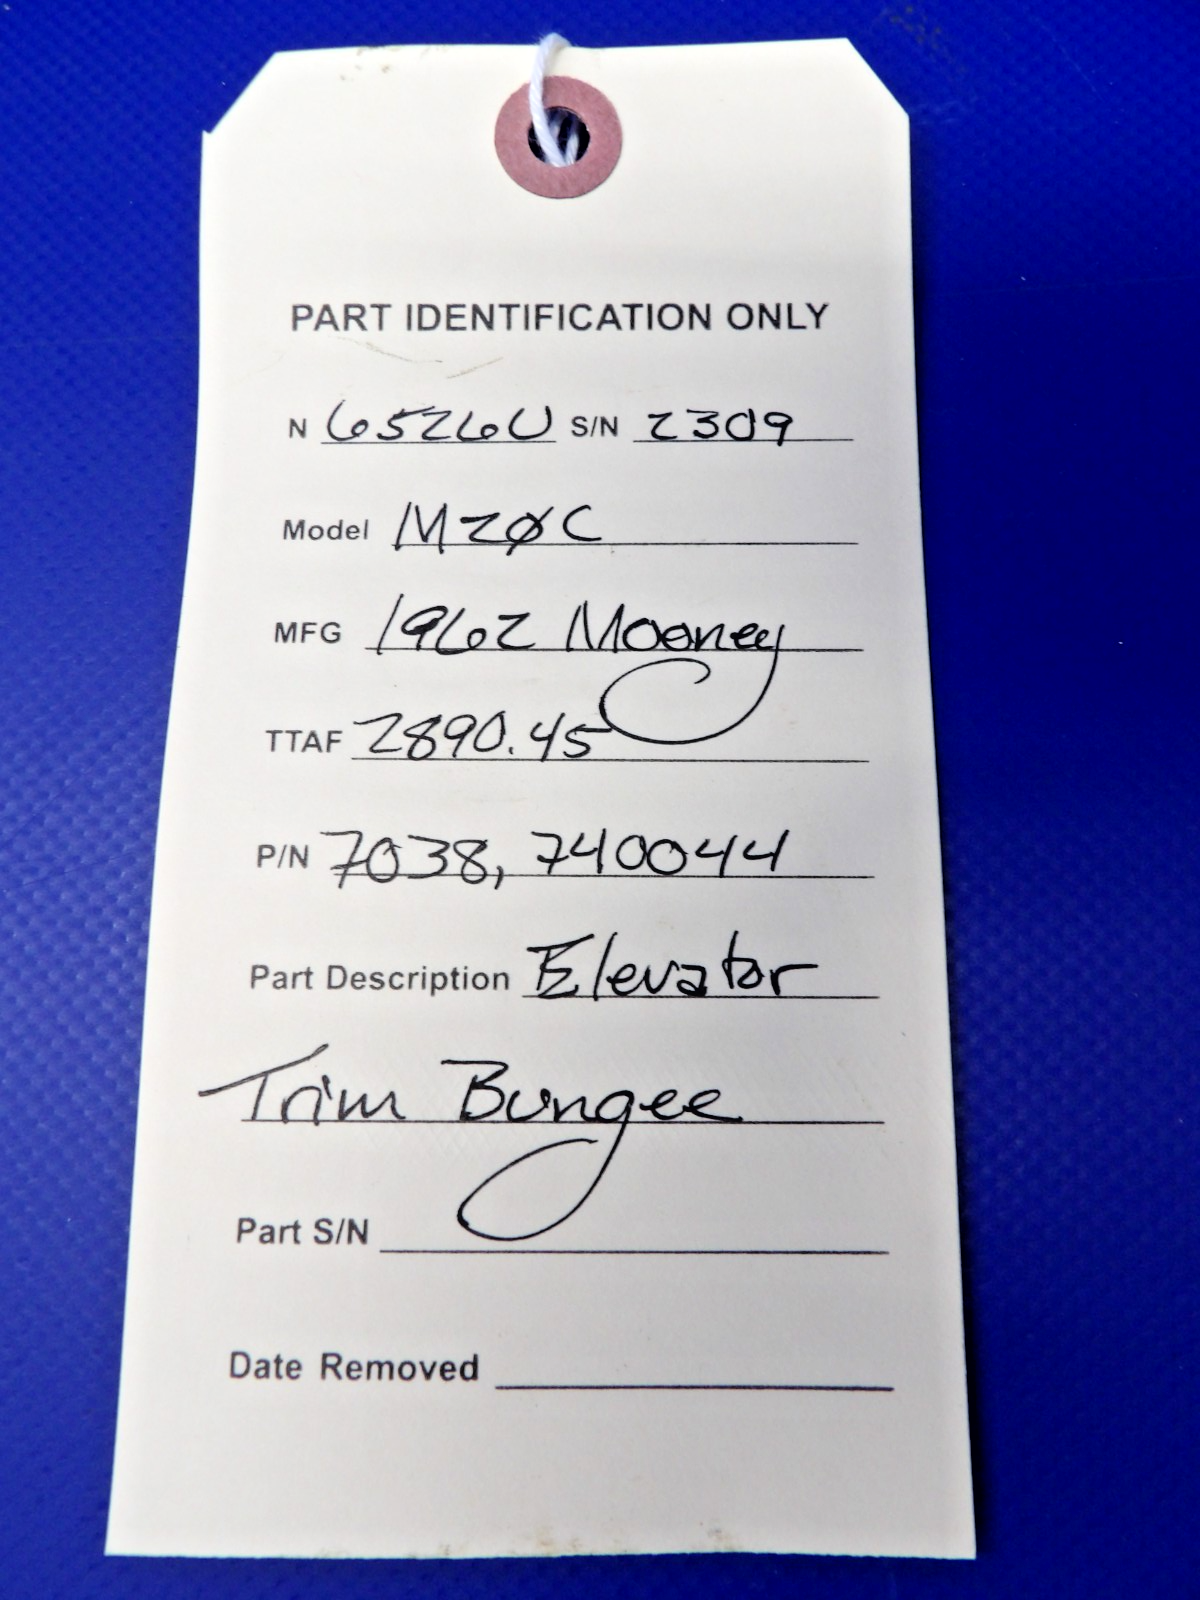 PART IDENTIFICATION ONLY
N 6526U S/N 2309
Model M2ØC
MFG 1962 Mooney
TTAF 2890.45
P/N 7038, 740044
Part Description Elevator
Trim Bungee
Part S/N
Date Removed